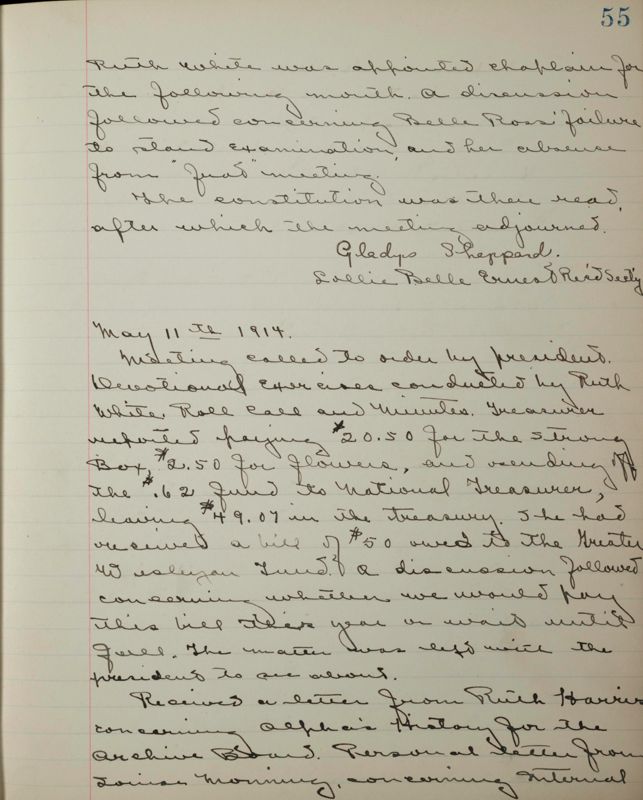 55
Ruth White was appointed chaplain for
the following month. A discussion
followed concerning Belle Ross' failure
to stand examination, and her absence
from "frat" meeting.
The constitution was then read,
after which the meeting adjourned.
Gladys Sheppard.
Lollie Belle Ernest Rec'd Sec'ty
May 11th 1914.
Meeting called to order by president.
Devotional Exercises conducted by Ruth
White. Roll Call and Minutes. Treasurer
reported paying $20.50 for the strong
Box, $2.50 for flowers, and sending off
the $.62 fund to National Treasurer,
leaving $49.07 in the treasury. She had
received a bill of $50 owed to the Greater
Wesleyan Fund. A discussion followed
concerning whether we would pay
this bill this year or wait until
fall. The matter was left with the
president to see about.
Received a letter from Ruth Harris
concerning Alpha's History for the
Archive Board. Personal letter from
Louise Monning, concerning Internal